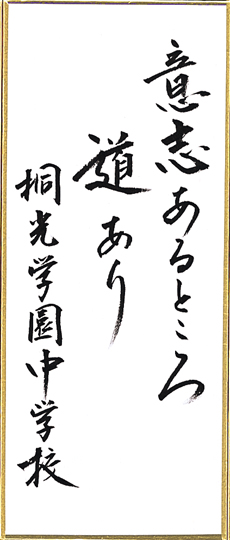 意志あるところ
道あり
桐光学園中学校